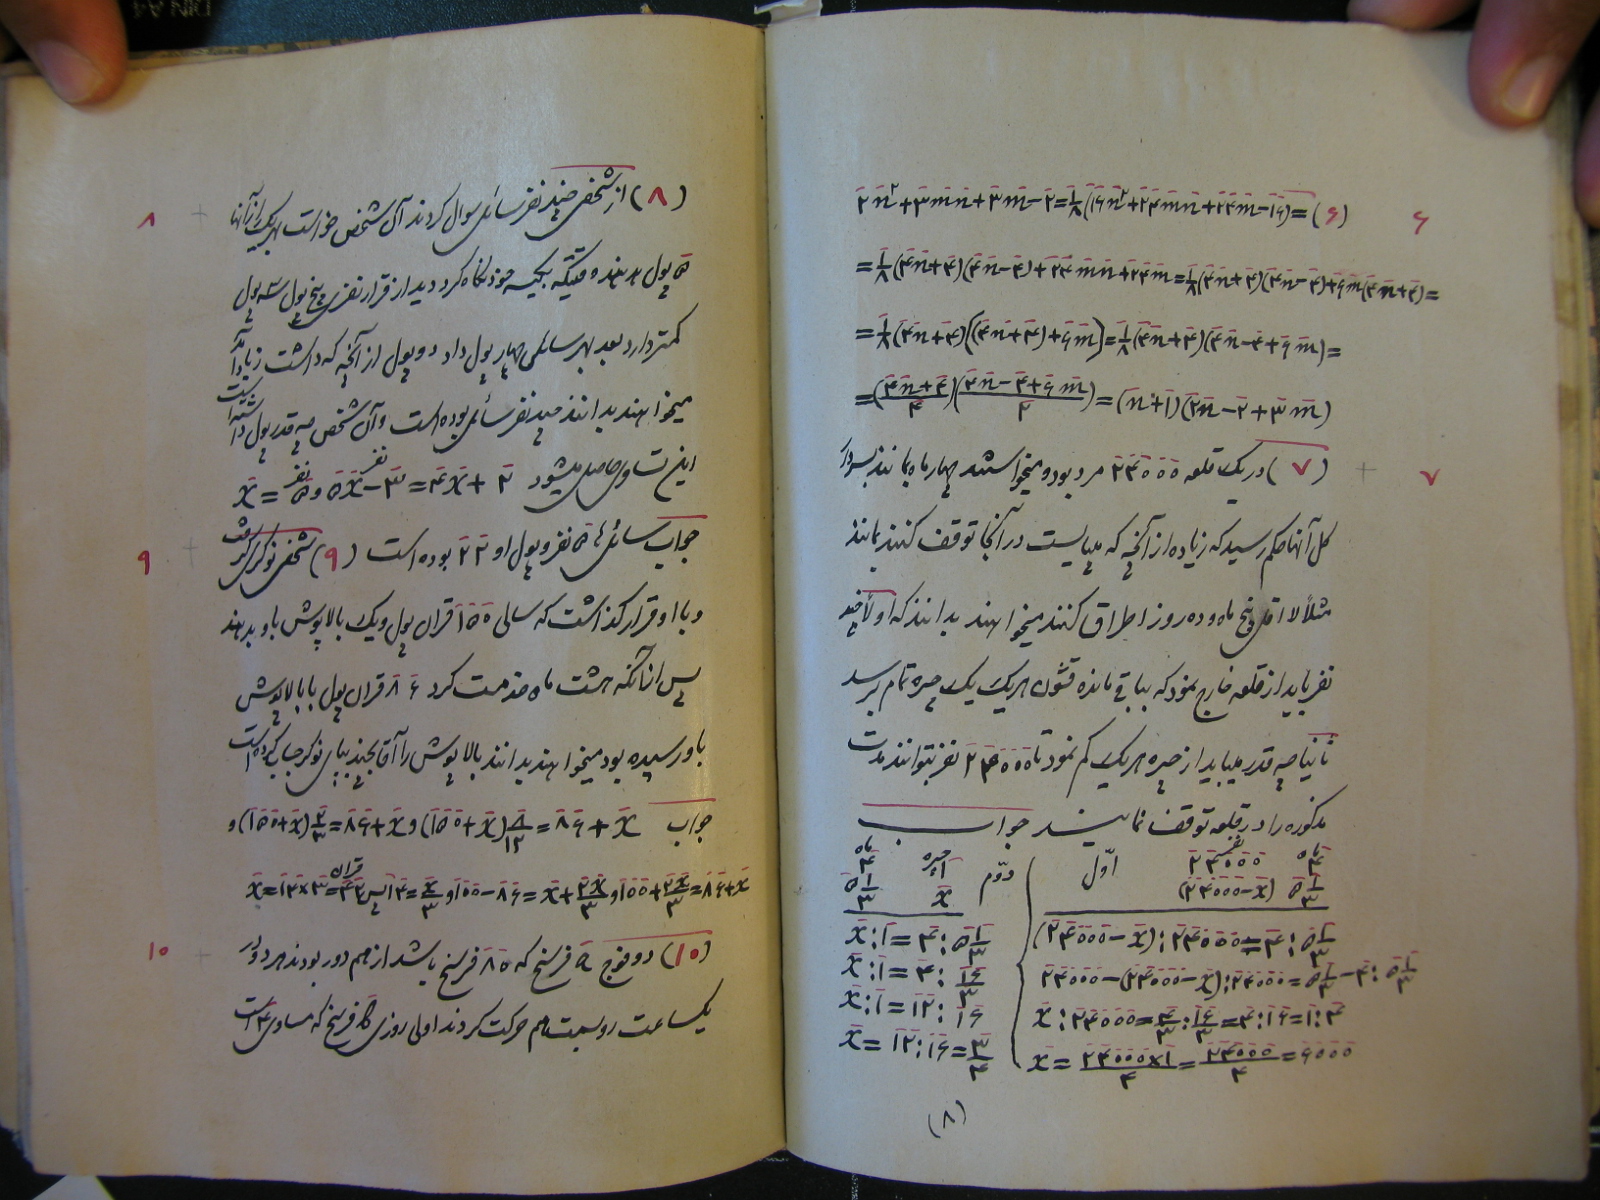 ۶
(۶) ۲n²+۳mn+۳m-۲=۱/۸(۱۶n²+۲۴mn+۲۴m-۱۶)=
=۱/۸(۴n+۴)(۴n-۴)+۲۴mn+۲۴m=۱/۸(۴n+۴)(۴n-۴)+۶m(۴n+۴)=
=۱/۸(۴n+۴)[(۴n+۴)+۶m]=۱/۸(۴n+۴)(۴n-۴+۶m)=
=(۴n+۴)/۴ (۴n-۴+۶m)/۲=(n+۱)(۲n-۲+۳m)
۷
(۷) در یک قلعه ۲۴۰۰۰ مرد بود و میخواستند چهار ماه بمانند بسردار
کل آنها حکم رسید که زیاده از آنچه که میبایست در آنجا توقف کنند بمانند
مثلاً لا اقل پنج ماه و ده روز اطراق کنند میخواهند بدانند که اولاً چند
نفر باید از قلعه خارج نمود که بباقی مانده قشون هر یک یک جیره تمام برسد
ثانیاً چه قدر میباید از جیره هر یک کم نمود تا ۲۴۰۰۰ نفر بتوانند مدت
مذکوره را در قلعه توقف نمایند جواب
اوّل
نفر ماه
۲۴۰۰۰ ۴
(۲۴۰۰۰-x) ۵ ۱/۳
(۲۴۰۰۰-x):۲۴۰۰۰=۴:۵ ۱/۳
۲۴۰۰۰-(۲۴۰۰۰-x):۲۴۰۰۰=۵ ۱/۳-۴:۵ ۱/۳
x:۲۴۰۰۰=۴/۳:۱۶/۳=۴:۱۶=۱:۴
x=۲۴۰۰۰×۱/۴=۲۴۰۰۰/۴=۶۰۰۰
دوّم
ماه جیره
۴ ۱
۵ ۱/۳ x
x:۱=۴:۵ ۱/۳
x:۱=۴:۱۶/۳
x:۱=۱۲:۱۶
x=۱۲:۱۶=۳/۴
(۸)
۸
(۸) از شخصی چند نفر سائل سوال کردند آن شخص خواست بهر یک از آنها
۵ پول بدهند وقتیکه بکیسه خود نگاه کرد دید از قرار نفری پنج پول سه پول
کمتر دارد بعد بهر سائلی چهار پول داد دو پول از آنچه که داشت زیاد آمد
میخواهند بدانند چند نفر سائل بوده است و آن شخص چه قدر پول داشته است
این تساوی حاصل میشود ۵x-۳=۴x+۲ و نفر ۵=x
جواب سائل ها ۵ نفر و پول او ۲۲ بوده است (۹) شخصی نوکری گرفت
۹
و با او قرار گذاشت که سالی ۱۵۰ قران پول و یک بالاپوش باو بدهند
پس از آنکه هشت ماه خدمت کرد ۸۶ قران پول با بالاپوش
باو رسیده بود میخواهند بدانند بالاپوش را آقا بچند بپای نوکر حساب کرده است
جواب x+۸۶=۸/۱۲(۱۵۰+x) و ۸۶+x=۲/۳(۱۵۰+x) و
۱۰۰+۲x/۳=۸۶+x و x+۲x/۳=۸۶-۱۰۰ و x/۳=۱۴ پس x=۱۴×۳=۴۲ قران
۱۰
(۱۰) دو فوج ۵ فرسخ که ۸۵ فرسخ باشد از هم دور بودند هر دو در
یکساعت رو بسمت هم حرکت کردند اولی روزی فرسخ که مساوی است